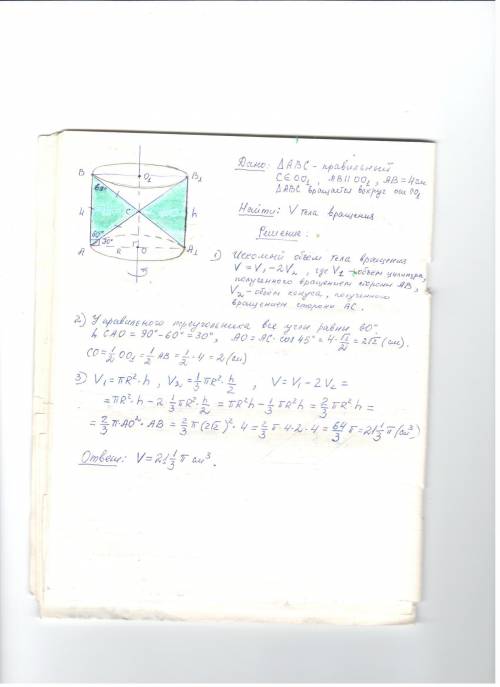 Дано: ΔABC - правильный
C∈OO₁, AB∥OO₁, AB=4см
ΔABC вращается вокруг оси OO₁
Найти: V тела вращения
Решение:
B
O₁
B₁
60°
4
C
h
60°
30°
A
a
O
A₁
1) Искомый объем тела вращения
V=V₁-2V₂, где V₁ - объём цилиндра,
полученного вращением стороны AB,
V₂ - объём конуса, полученного
вращением стороны AC.
2) У правильного треугольника все углы равны 60°.
∟CAO=90°-60°=30°, AO=AC·cos45°=4·√2/2=2√2(см).
CO=1/2 OO₁=1/2 AB=1/2·4=2(см)
3) V₁=πR²·h, V₂=1/3 πR²·h/2, V=V₁-2V₂=
=πR²·h-2·1/3 πR²·h/2=πR²h-1/3 πR²h=2/3 πR²h=
=2/3 π·AO²·AB=2/3 π(2√2)²·4=2/3 π·4·2·4=64/3 π=21 1/3 π(см³)
Ответ: V=21 1/3 π см³.